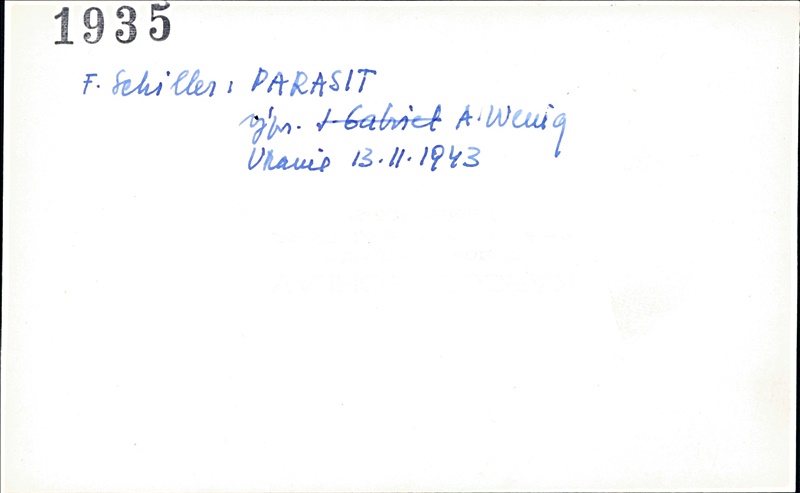 1935
F. Schiller: PARASIT
výpr. J. Gabriel A. Wenig
Uranie 13.11.1943